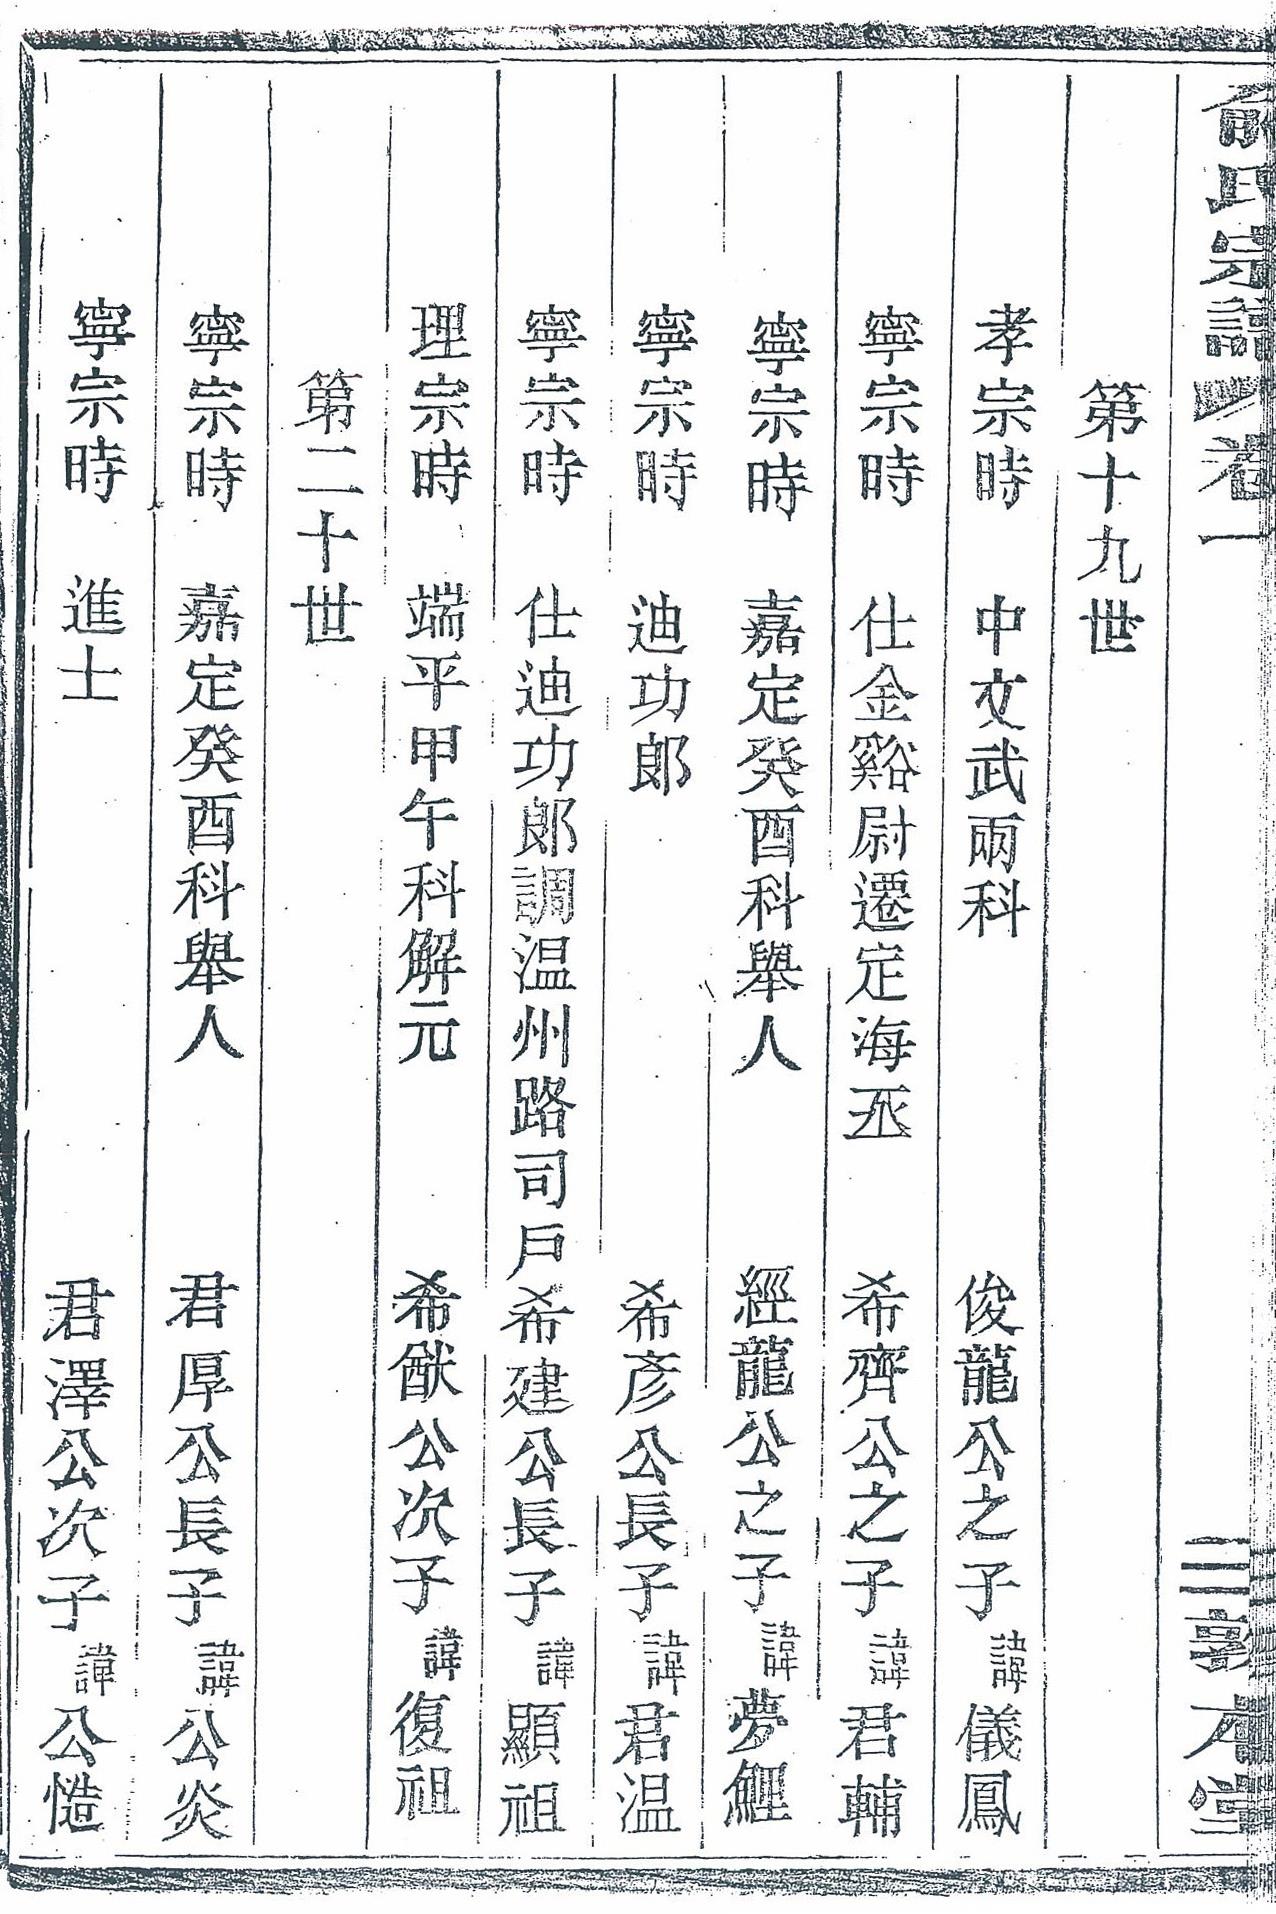 俞氏宗譜 卷一 三 敦本堂
第十九世
孝宗時 中文武兩科 俊龍公之子 諱 儀鳳
寧宗時 仕金谿尉遷定海丞 希齊公之子 諱 君輔
寧宗時 嘉定癸酉科舉人 經龍公之子 諱 夢鯉
寧宗時 迪功郎 希彥公長子 諱 君温
寧宗時 仕迪功郎調温州路司戶 希建公長子 諱 顯祖
理宗時 端平甲午科解元 希猷公次子 諱 復祖
第二十世
寧宗時 嘉定癸酉科舉人 君厚公長子 諱 公炎
寧宗時 進士 君澤公次子 諱 公慥